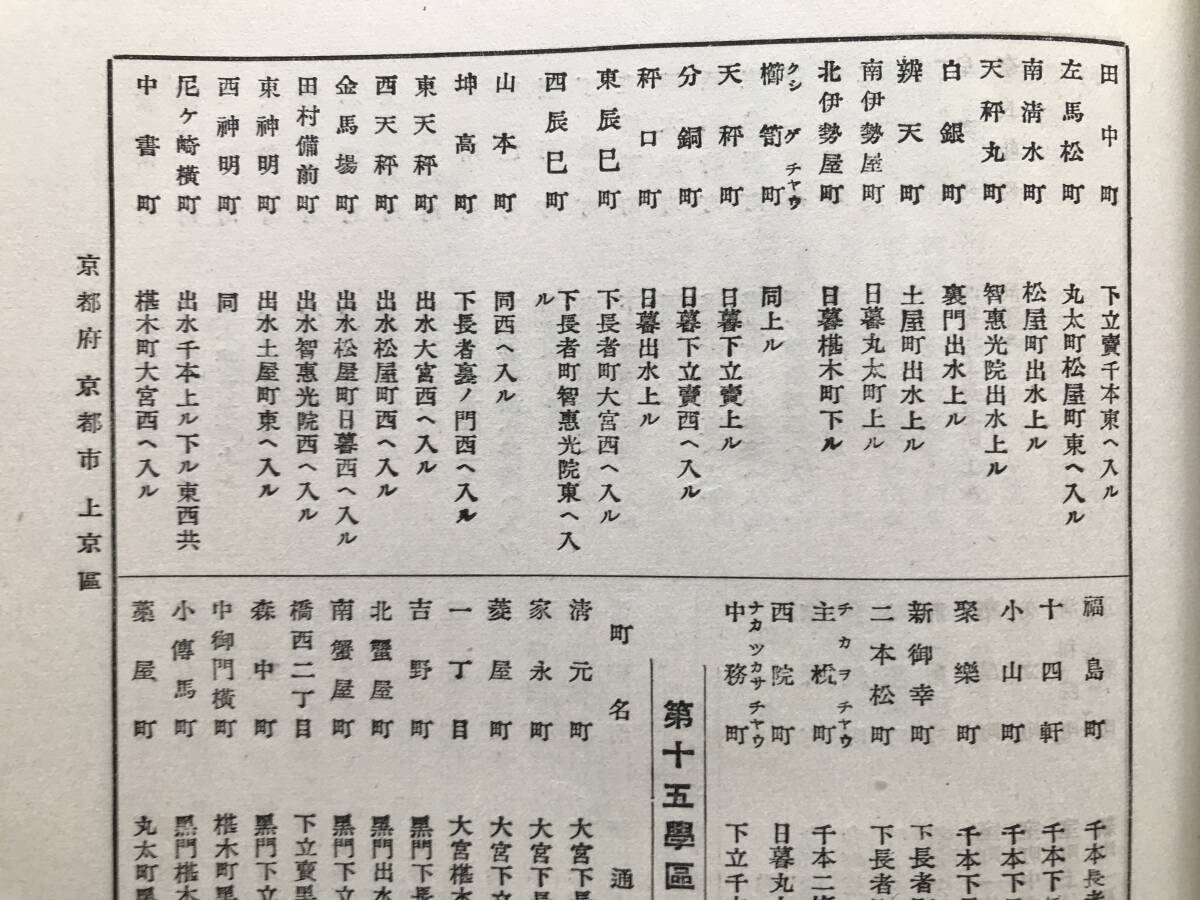 田中町 下立賣千本東へ入ル
左馬松町 丸太町松屋町東へ入ル
南清水町 松屋町出水上ル
天秤丸町 智惠光院出水上ル
白銀町 裏門出水上ル
辨天町 土屋町出水上ル
南伊勢屋町 日暮丸太町上ル
北伊勢屋町 日暮椹木町下ル
櫛笥町 クシゲチャウ 同上ル
天秤町 日暮下立賣上ル
分銅町 日暮下立賣西へ入ル
秤口町 日暮出水上ル
東辰巳町 下長者町大宮西へ入ル
西辰巳町 下長者町智惠光院東へ入ル
山本町 同西へ入ル
坤高町 下長者裏ノ門西へ入ル
東天秤町 出水大宮西へ入ル
西天秤町 出水松屋町西へ入ル
金馬場町 出水松屋町日暮西へ入ル
田村備前町 出水智惠光院西へ入ル
東神明町 出水土屋町東へ入ル
西神明町 同
尼ケ崎横町 出水千本上ル下ル東西共
中書町 椹木町大宮西へ入ル
福島町 千本長者
十四軒町 千本下
小山町 千本下
聚樂町 千本下
新御幸町 下長者
二本松町 下長者
主税町 チカヲチャウ 千本二條
西院町 日暮丸
中務町 ナカツカサチャウ 下立千
第十五學區
町名 通
清元町 大宮下長
家永町 大宮下長
菱屋町 大宮下立
一丁目 大宮椹木
吉野町 黑門下長
北蟹屋町 黑門出水
南蟹屋町 黑門下立
橋西二丁目 下立賣黑
森中町 黑門下立
中御門横町 椹木町黑
小傳馬町 黑門椹木
藁屋町 丸太町黑
京都府 京都市 上京區